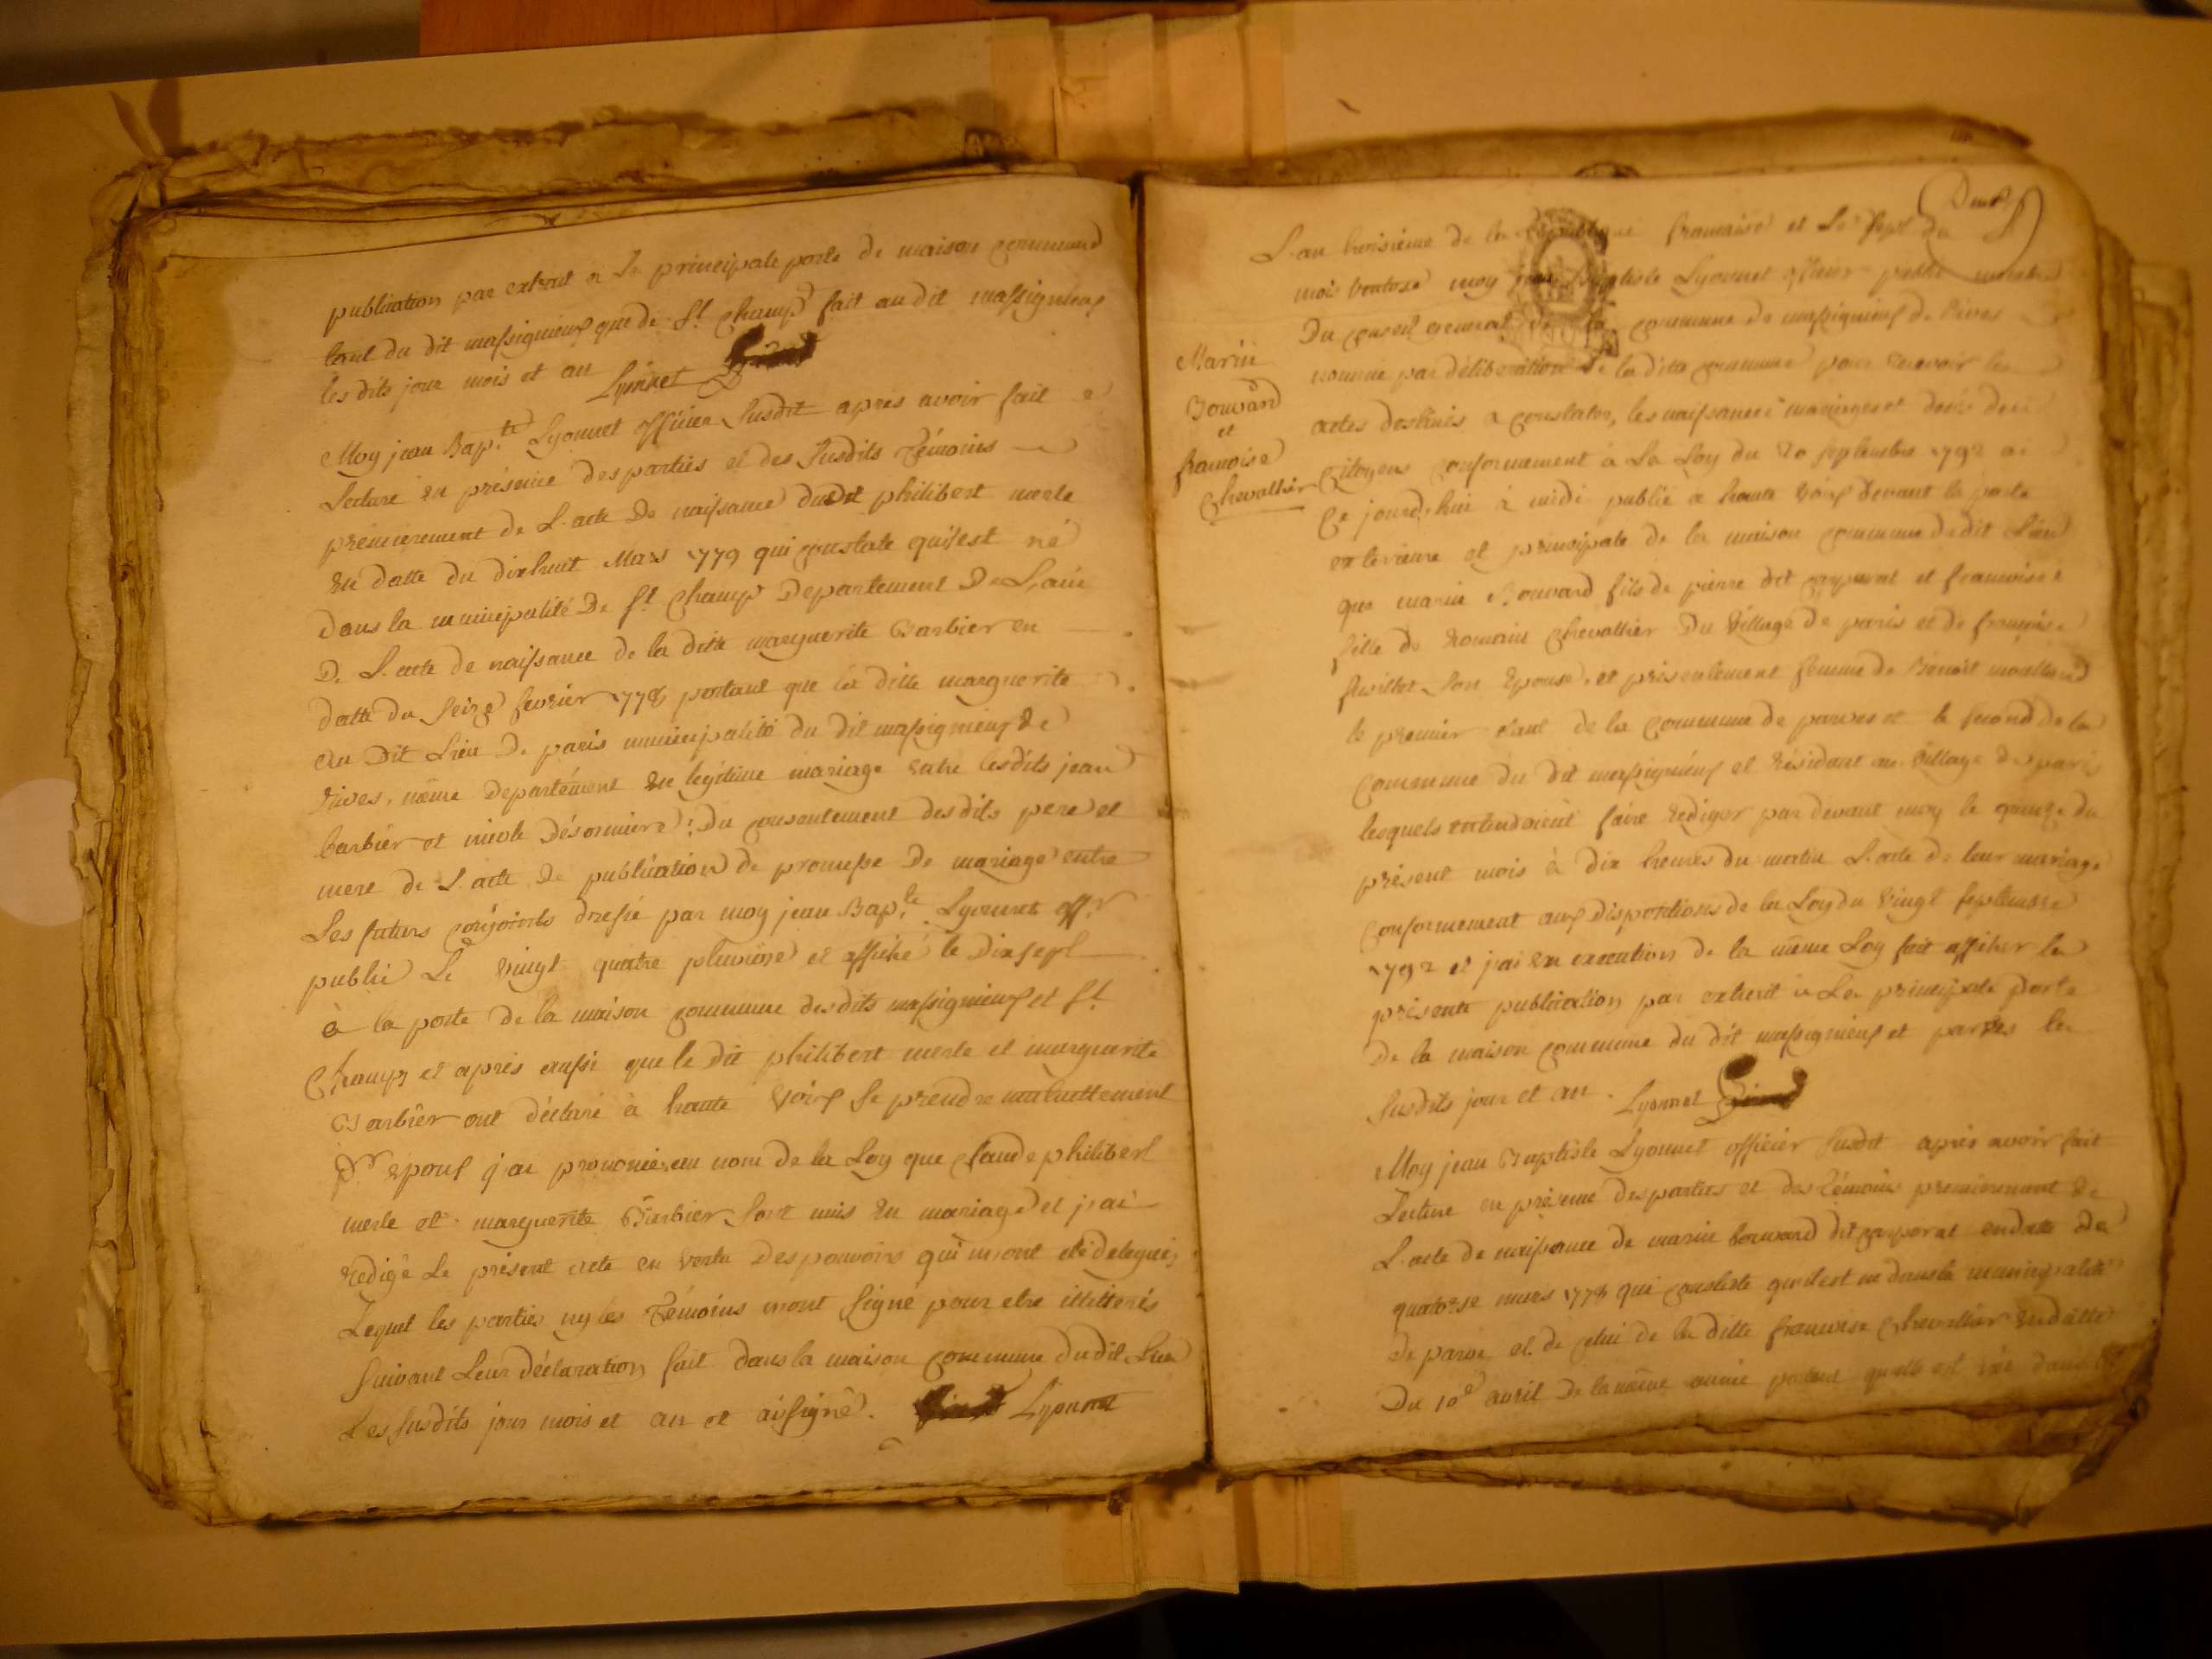 publication par extrait a La principale porte de maison commune
tant du dit massignieux que de St champ fait au dit massignieux
les dits jour mois et an Lyonnet
Moy jean Bap.te Lyonnet officier susdit apres avoir fait
Lecture en présence des parties et des susdits Témoins
premierement de L'acte De naissance dudit philibert merle
en datte du dixhuit Mars 1779 qui constate qu'il est né
dans la municipalité De St Champ Departement De L'ain
D. L'acte de naissance de la ditte marguerite Barbier en
datte du seize fevrier 1778 portant que la ditte marguerite
au Dit Lieu De paris municipalité du dit massignieux de
rives, même Departement en legitime mariage entre lesdits jean
barbier et nicole Désormiere: Du consentement desdits pere et
mere de L'acte De publication de promesse De mariage entre
Les futurs conjoints dressé par moy jean Bap.te Lyonnet off.r
publié Le vingt quatre pluviose et affiché le Dixsept
à la porte de la maison commune desdits massignieux et St
Champ et après aussi que le dit philibert merle et marguerite
Barbier ont déclaré à haute voix se prendre mutuellement
P.r epoux j'ai prononcé au nom de la Loy que claude philibert
merle et marguerite Barbier sont unis en mariage et j'ai
redigé Le présent acte en vertu Des pouvoirs qui m'ont été delegués
Lequel les parties ny les Témoins n'ont signé pour etre illitterés
suivant Leur déclaration fait dans la maison commune dudit Lieu
Les susdits jour mois et an et ai signé. Lyonnet
L'an troisieme de la Republique francaise et Le sept du
mois ventose moy jean Baptiste Lyonnet officier public membre
Du conseil general de la commune de massignieux de Rives
nommé par déliberation de la ditte commune pour recevoir les
actes destinés a constater, les naissances mariages et decès des
Marin
Bouvard
et
francoise
Chevallier
Citoyens conformement à La Loy du 20 septembre 1792 ai
Ce jourd'hui à midi publié à haute voix devant la porte
exterieure et principale de la maison commune dudit Lieu
que marin Bouvard fils de pierre dit caporal et francoise
fille de Romain Chevallier Du village de paris et de francoise
son epouse, et présentement femme de Benoit
le premier etant de la commune de parves et le second de la
commune du dit massignieux et résidant au village de paris
lesquels entendoient faire rediger par devant moy le quinze du
présent mois à dix heures du matin L'acte de leur mariage
conformement aux Dispositions de la Loy du vingt septembre
1792 et j'ai en execution de la même Loy fait afficher la
présente publication par extrait à La principale Porte
De la maison commune du dit massignieux et parves les
susdits jour et an. Lyonnet
Moy jean Baptiste Lyonnet officier susdit après avoir fait
Lecture en présence des parties et des Témoins premierement de
L'acte de naissance de marin bouvard dit caporal en datte du
quatorse mars 1778 qui constate qu'il est né dans la municipalité
De parves et de celui de la ditte francoise Chevallier en datte
Du 10e avril De la même année portant quelle est née dans